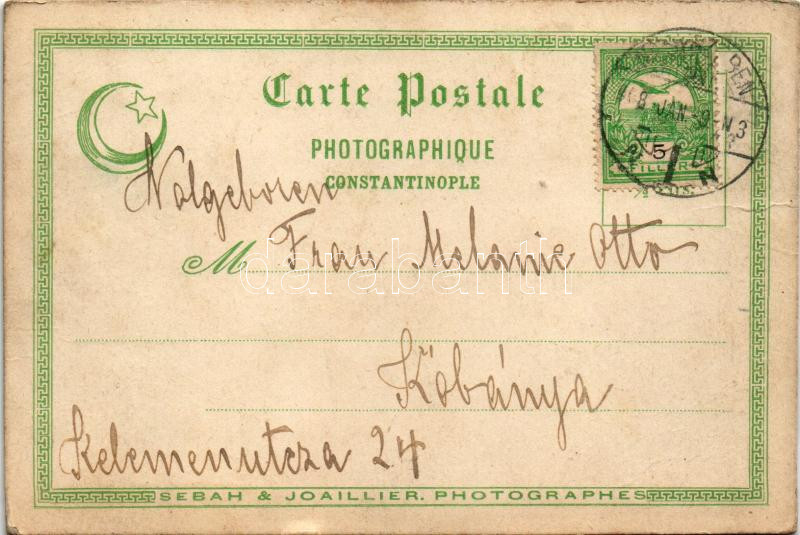 Carte Postale
PHOTOGRAPHIQUE
CONSTANTINOPLE
Wolgeboren
M Frau Melanie Otto
Kőbánya
Kelemenutcza 24
SEBAH & JOAILLIER. PHOTOGRAPHES
5
FILLÉR
JAN
darabanth